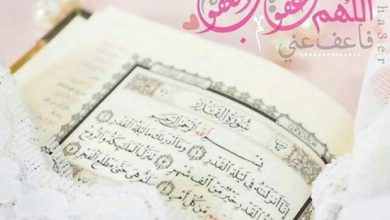 اللهم إنك عفو تحب العفو
فاعف عني
ha3er
سورة القدر
بسم الله الرحمن الرحيم
إنا أنزلنه في ليلة القدر وما أدرىك ما ليلة القدر
ليلة القدر خير من ألف شهر تنزل الملئكة والروح
من كل أمر
هي حتى مطلع الفجر